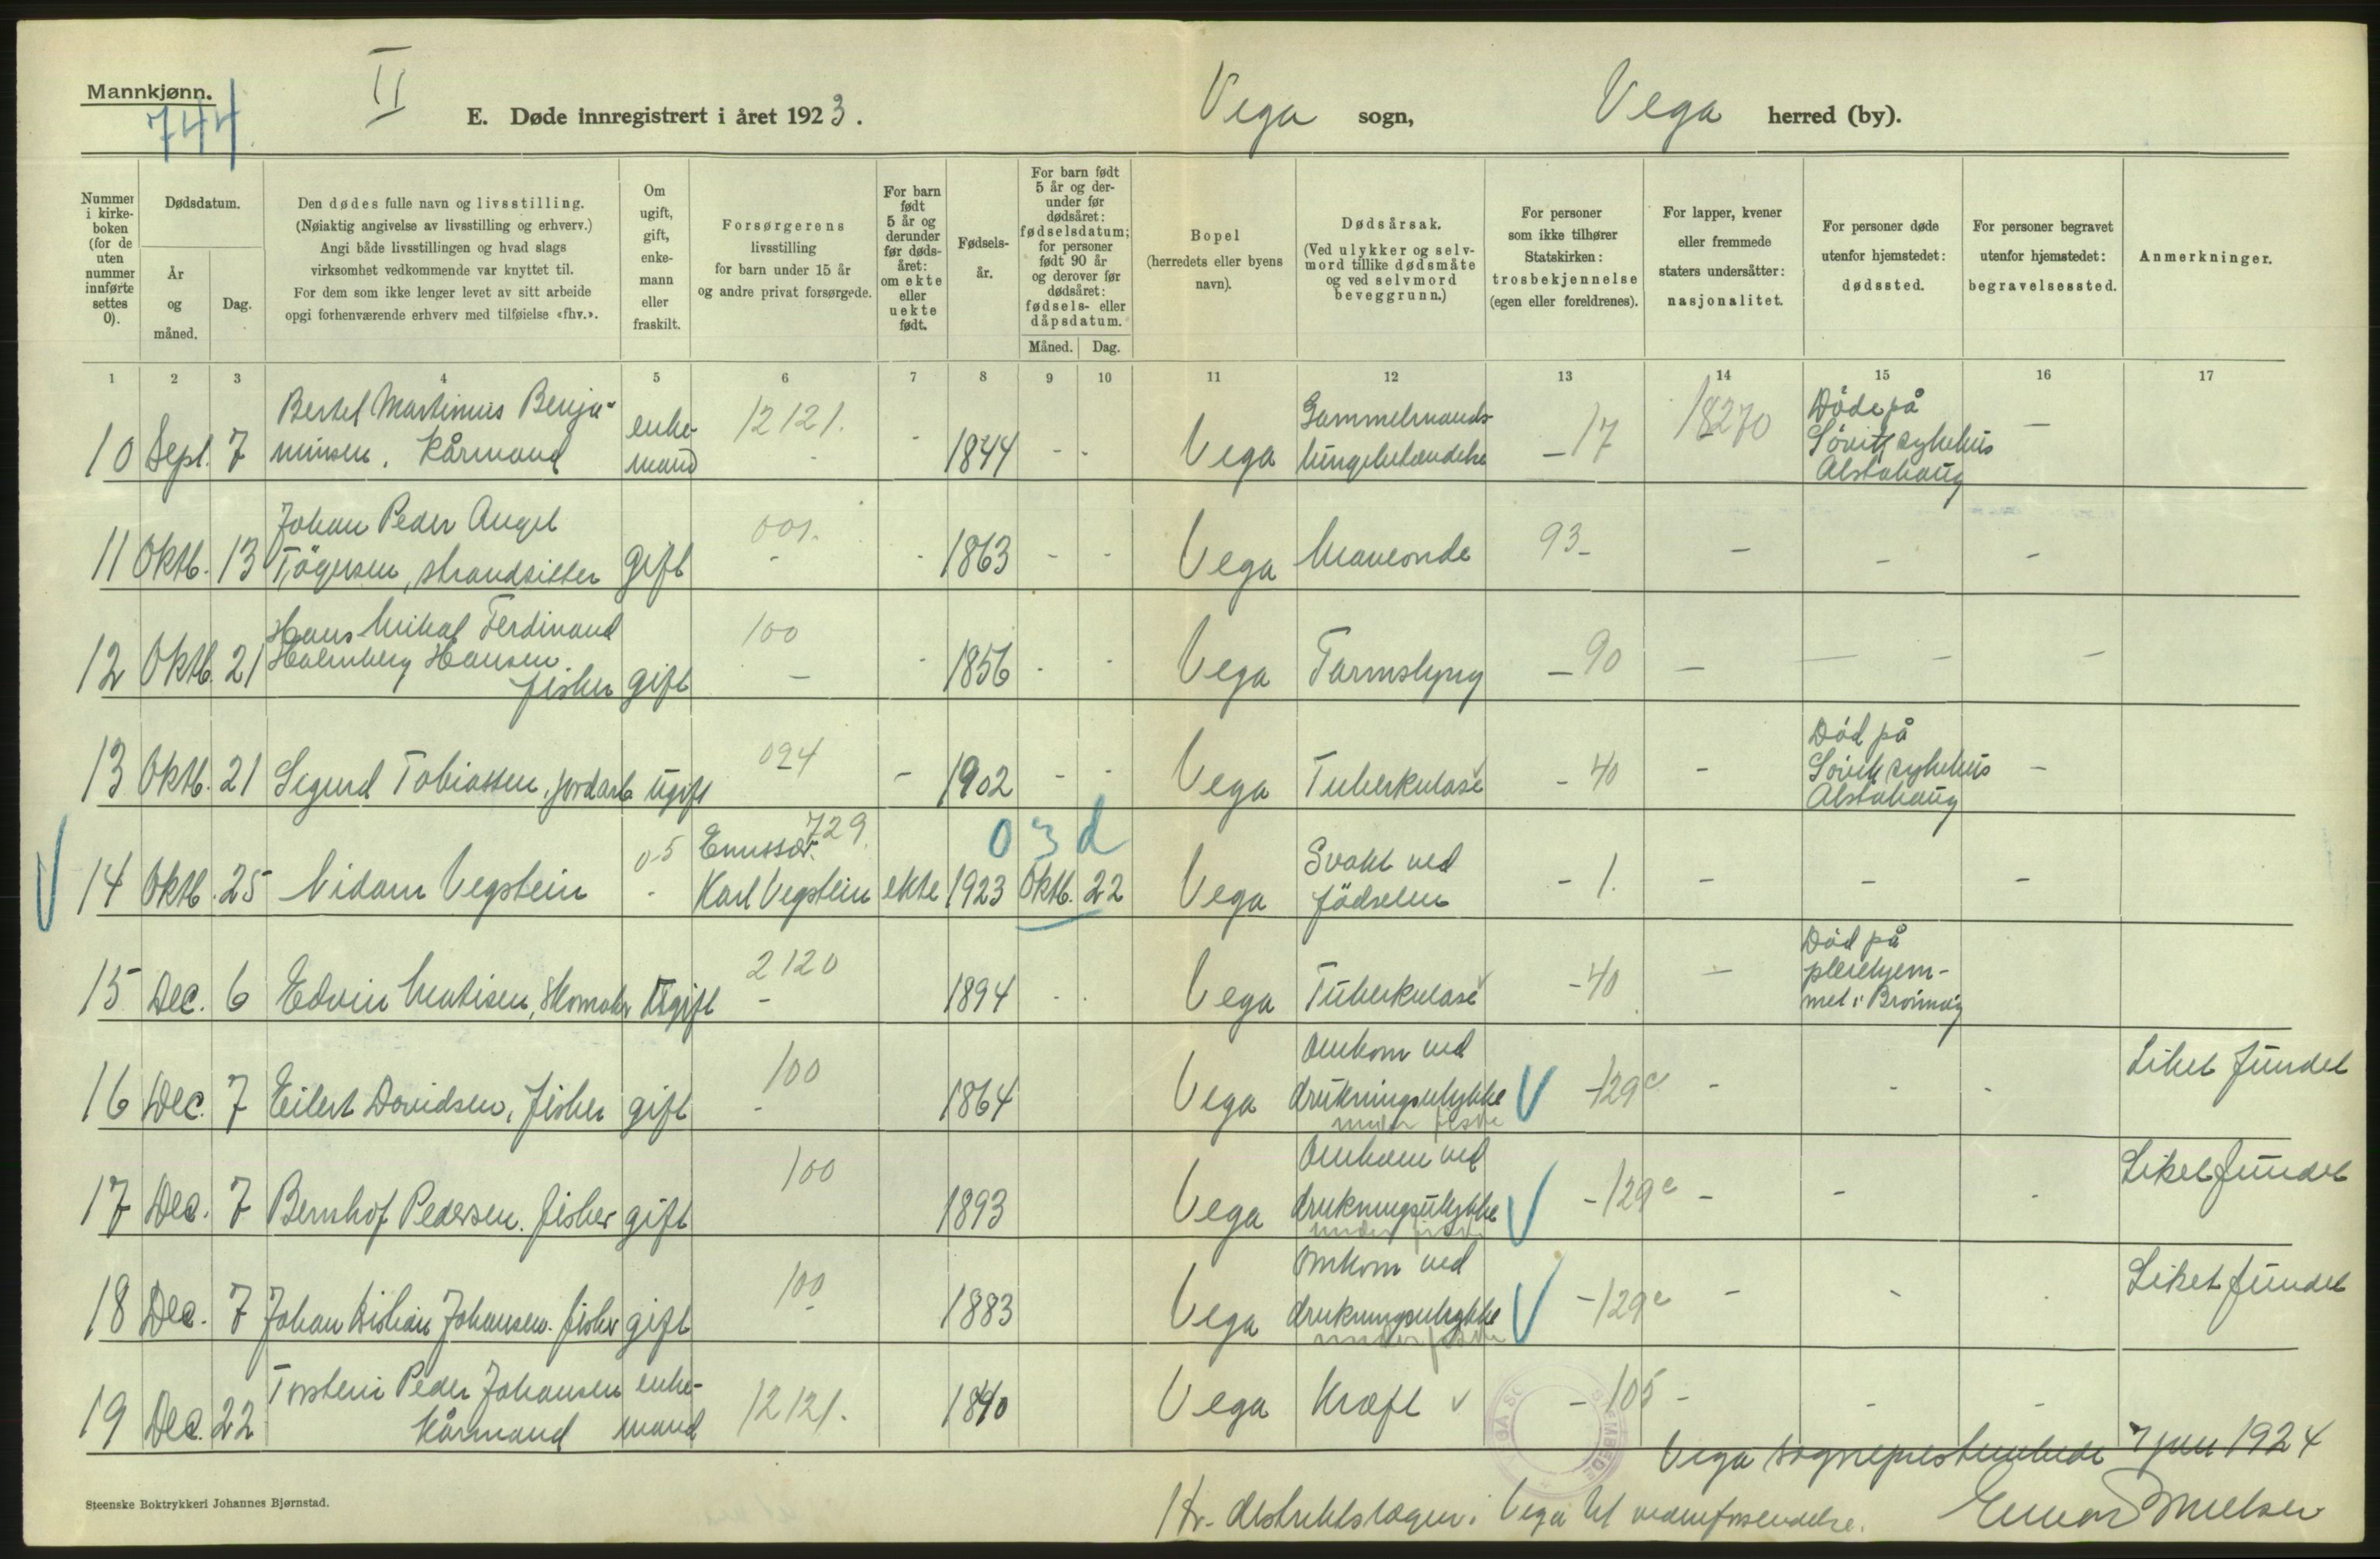 Mannkjønn.
744
II
E. Døde innregistrert i året 1923.
Vega sogn,
Vega herred (by).
Nummer i kirke-boken (for de uten nummer innførte settes 0).
Dødsdatum.
År og måned.
Dag.
Den dødes fulle navn og livsstilling.
(Nøiaktig angivelse av livsstilling og erhverv.)
Angi både livsstillingen og hvad slags
virksomhet vedkommende var knyttet til.
For dem som ikke lenger levet av sitt arbeide
opgi forhenværende erhverv med tilføielse «fhv.».
Om ugift, gift, enke-mann eller fraskilt.
Forsørgerens
livsstilling
for barn under 15 år
og andre privat forsørgede.
For barn født 5 år og derunder før døds-året: om ekte eller uekte født.
Fødsels-år.
For barn født 5 år og der-under før dødsåret: fødselsdatum; for personer født 90 år og derover før dødsåret: fødsels- eller dåpsdatum.
Måned. Dag.
Bopel
(herredets eller byens
navn).
Dødsårsak.
(Ved ulykker og selv-
mord tillike dødsmåte
og ved selvmord
beveggrunn.)
For personer
som ikke tilhører
Statskirken:
trosbekjennelse
(egen eller foreldrenes).
For lapper, kvener
eller fremmede
staters undersåtter:
nasjonalitet.
For personer døde
utenfor hjemstedet:
dødssted.
For personer begravet
utenfor hjemstedet:
begravelsessted.
Anmerkninger.
1 2 3 4 5 6 7 8 9 10 11 12 13 14 15 16 17
Bertel Martinus Benja-
10 Sept. 7 minsen. Kårmand
enke-
mand
12121.
- 1844 - - Vega
Gammelmands-
lungebetændelse
- 17
18270
Döde på
Søvik sykehus
Alstahaug
-
Johan Peder Angel
11 Oktb. 13 Tögersen, strandsitter gift
001.
- - 1863 - - Vega Mavesonde 93- - - -
Hans Mikal Ferdinand
12 Oktb. 21 Holmberg Hansen.
fisker gift
100
- - 1856 - - Vega Tarmslyng - 90 - - - -
13 Oktb. 21 Sigurd Tobiassen, jordarb ugift
024
- 1902 - - Vega Tuberkulose - 40 -
Död på
Søvik sykehus
Alstahaug
-
V
14 Oktb. 25 Nidar Vegstein
05
-
Emissær. 729.
Karl Vegstein ekte 1923 Oktb. 22
03d
Vega
Svakt ved
födselen
- 1. - - -
15 Dec. 6 Edvin Matisen, Skomaker Ugift
2120
- 1894 - - Vega Tuberkulose - 40 -
Död på
pleiehjem-
met i Brönnöy
16 Dec. 7 Eilert Davidsen, fisker gift
100
- 1864 Vega
Omkom ved
drukningsulykke
under fiske
V -129c - - -
Liket fundet
17 Dec. 7 Bernhof Pedersen. fisker gift
100
1893 Vega
Omkom ved
drukningsulykke
under fiske
V -129c - - -
Liket fundet
18 Dec. 7 Johan Johansen. fisker gift
100
- 1883 Vega
Omkom ved
drukningsulykke
under fiske
V -129c - - -
Liket fundet
Torstein Peder Johansen
19 Dec. 22 Kårmand
enke-
mand
12121.
1840 Vega Kræft v - 105 - - -
Vega sogneprestembede 7 jan 1924
Hr. distriktslægen i Vega til videreforsendelse.
Einar Nielsen
Steenske Boktrykkeri Johannes Bjørnstad.